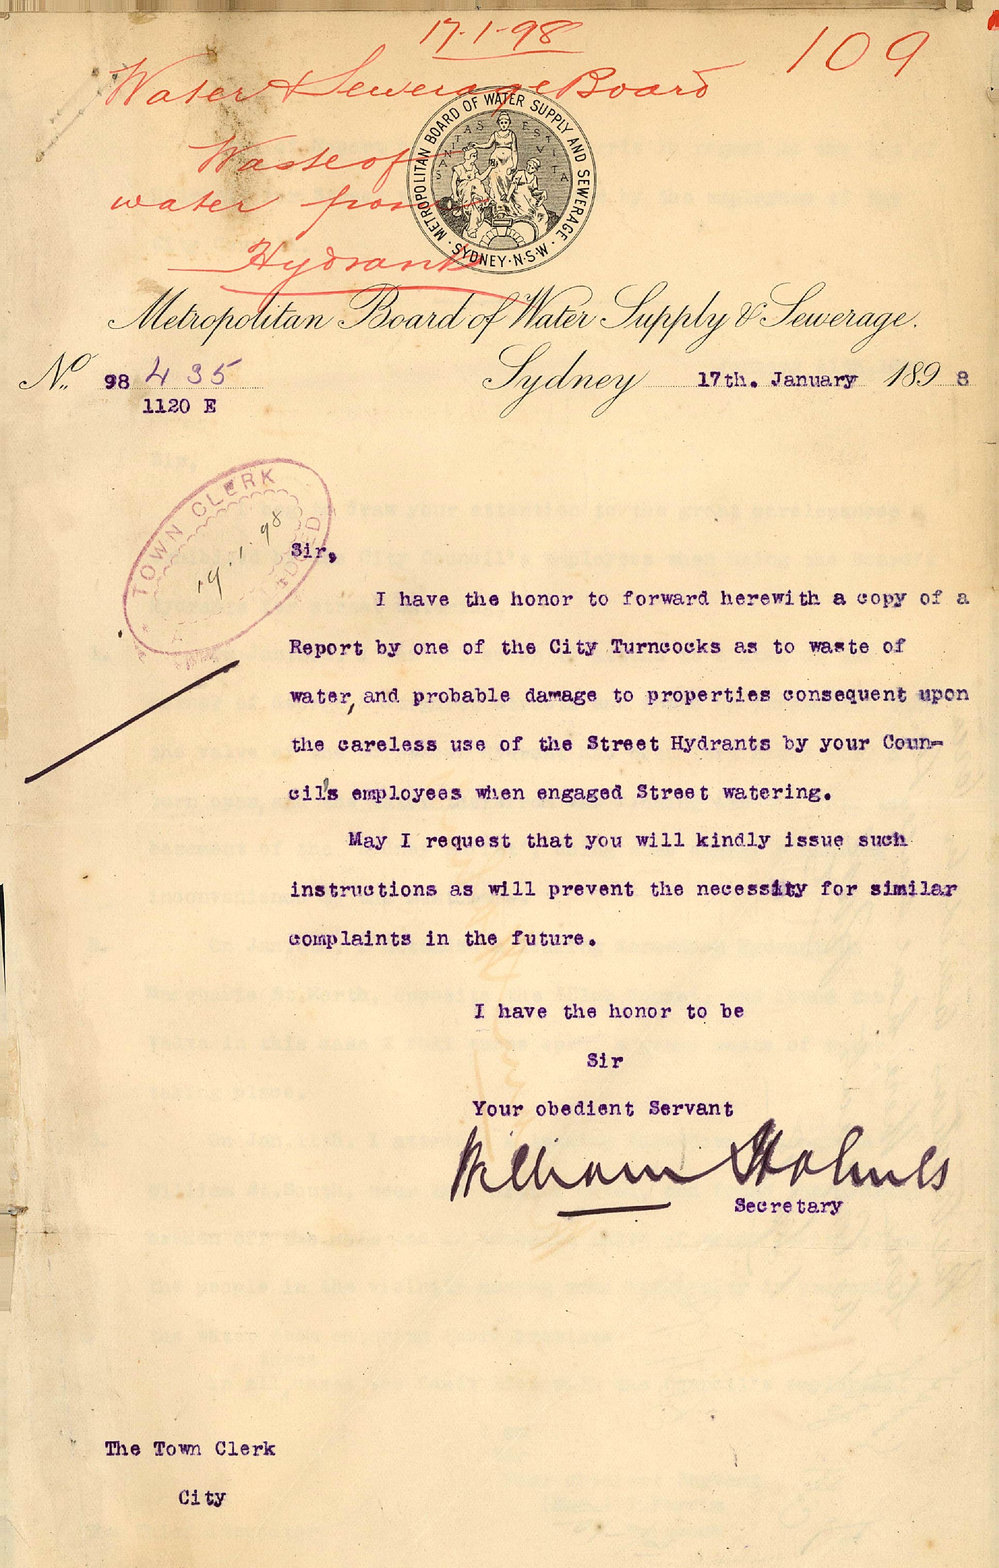 17-1-98
109
Water & Sewerage Board
Waste of
water from
Hydrants
METROPOLITAN BOARD OF WATER SUPPLY AND SEWERAGE.
SYDNEY·N·S·W·
Metropolitan Board of Water Supply & Sewerage.
No. 98 435
1120 E
Sydney 17th. January 1898
TOWN CLERK
19.1.98
Sir,
I have the honor to forward herewith a copy of a
Report by one of the City Turncocks as to waste of
water, and probable damage to properties consequent upon
the careless use of the Street Hydrants by your Coun-
cil's employees when engaged Street watering.
May I request that you will kindly issue such
instructions as will prevent the necessity for similar
complaints in the future.
I have the honor to be
Sir
Your obedient Servant
William Holmes
Secretary
The Town Clerk
City